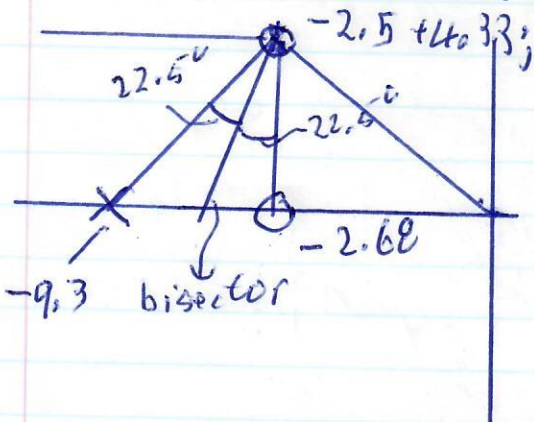 -2.5 +4.33j
22.5°
-22.5°
-2.68
-9.3 bisector